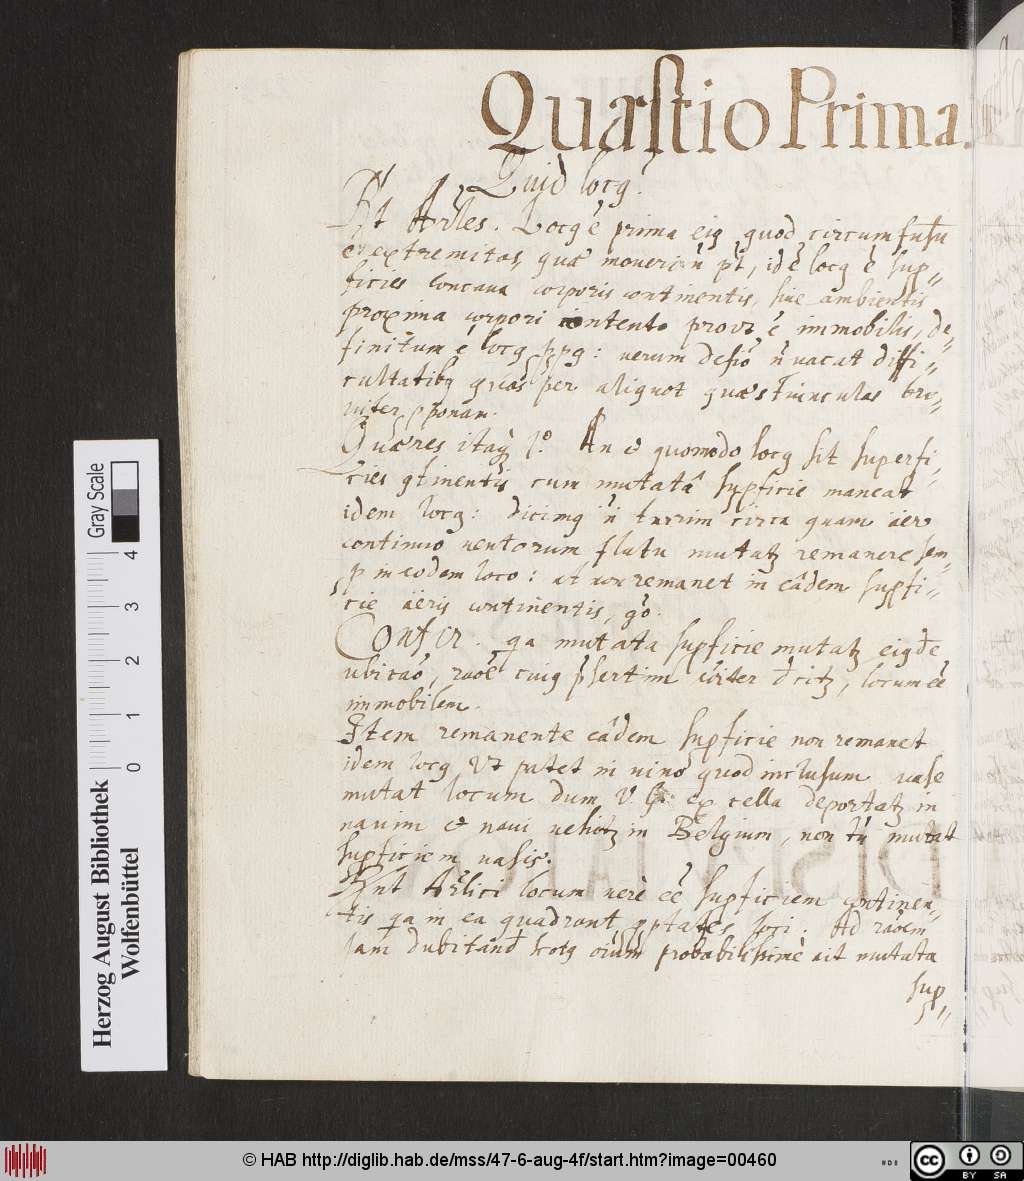 Quæstio Prima.
Quid locꝰ.
Ait Arles. Locꝰ ē prima eiꝰ quod circumfusū
extremitas, quæ moveri n̄ pt̄, idē locꝰ ē sup„
ficies concava corporis continentis, sive ambientis
proxima corpori contento prout ē immobilis, de„
finitum ē locꝰ : verum defiō n̄ vacat diffi„
cultatibꝰ quas per aliquot quæstiunculas bre„
viter ꝓponam.
Quæres itaq; 1.º An et quomodo locꝰ sit superfi„
cies ꝯtinentis cum mutatâ supficie maneat
idem locꝰ: dicimꝰ n̄ turrim circa quam äer
continuo ventorum flatu mutatꝫ remanere sem„
p in eodem loco: at non remanet in eâdem supfi„
cie äeris continentis, gō.
Confꝛ. qa mutata supficie mutatꝫ eiꝰdē
ubicaō, raōe cuiꝰ p̄sertim dr̄citꝫ, locum eē
immobilem.
Item remanente eâdem supficie non remanet
idem locꝰ Vt patet in vino quod inclusum vase
mutat locum dum V. G: ex cella deportatꝫ in
navim et navi vehitꝫ in Belgium, non tn̄ mutat
supficiem vasis.
Aīunt Arlici locum verè eē supficiem continen„
tis qa in ea quadrant ꝓptates loci. Ad raōem
iam dubitand̄ Scotꝰ oīum probabilissimè ait mutata
sup„
Herzog August Bibliothek
Wolfenbüttel
0 1 2 3 4
Gray Scale
© HAB http://diglib.hab.de/mss/47-6-aug-4f/start.htm?image=00460
cc BY SA